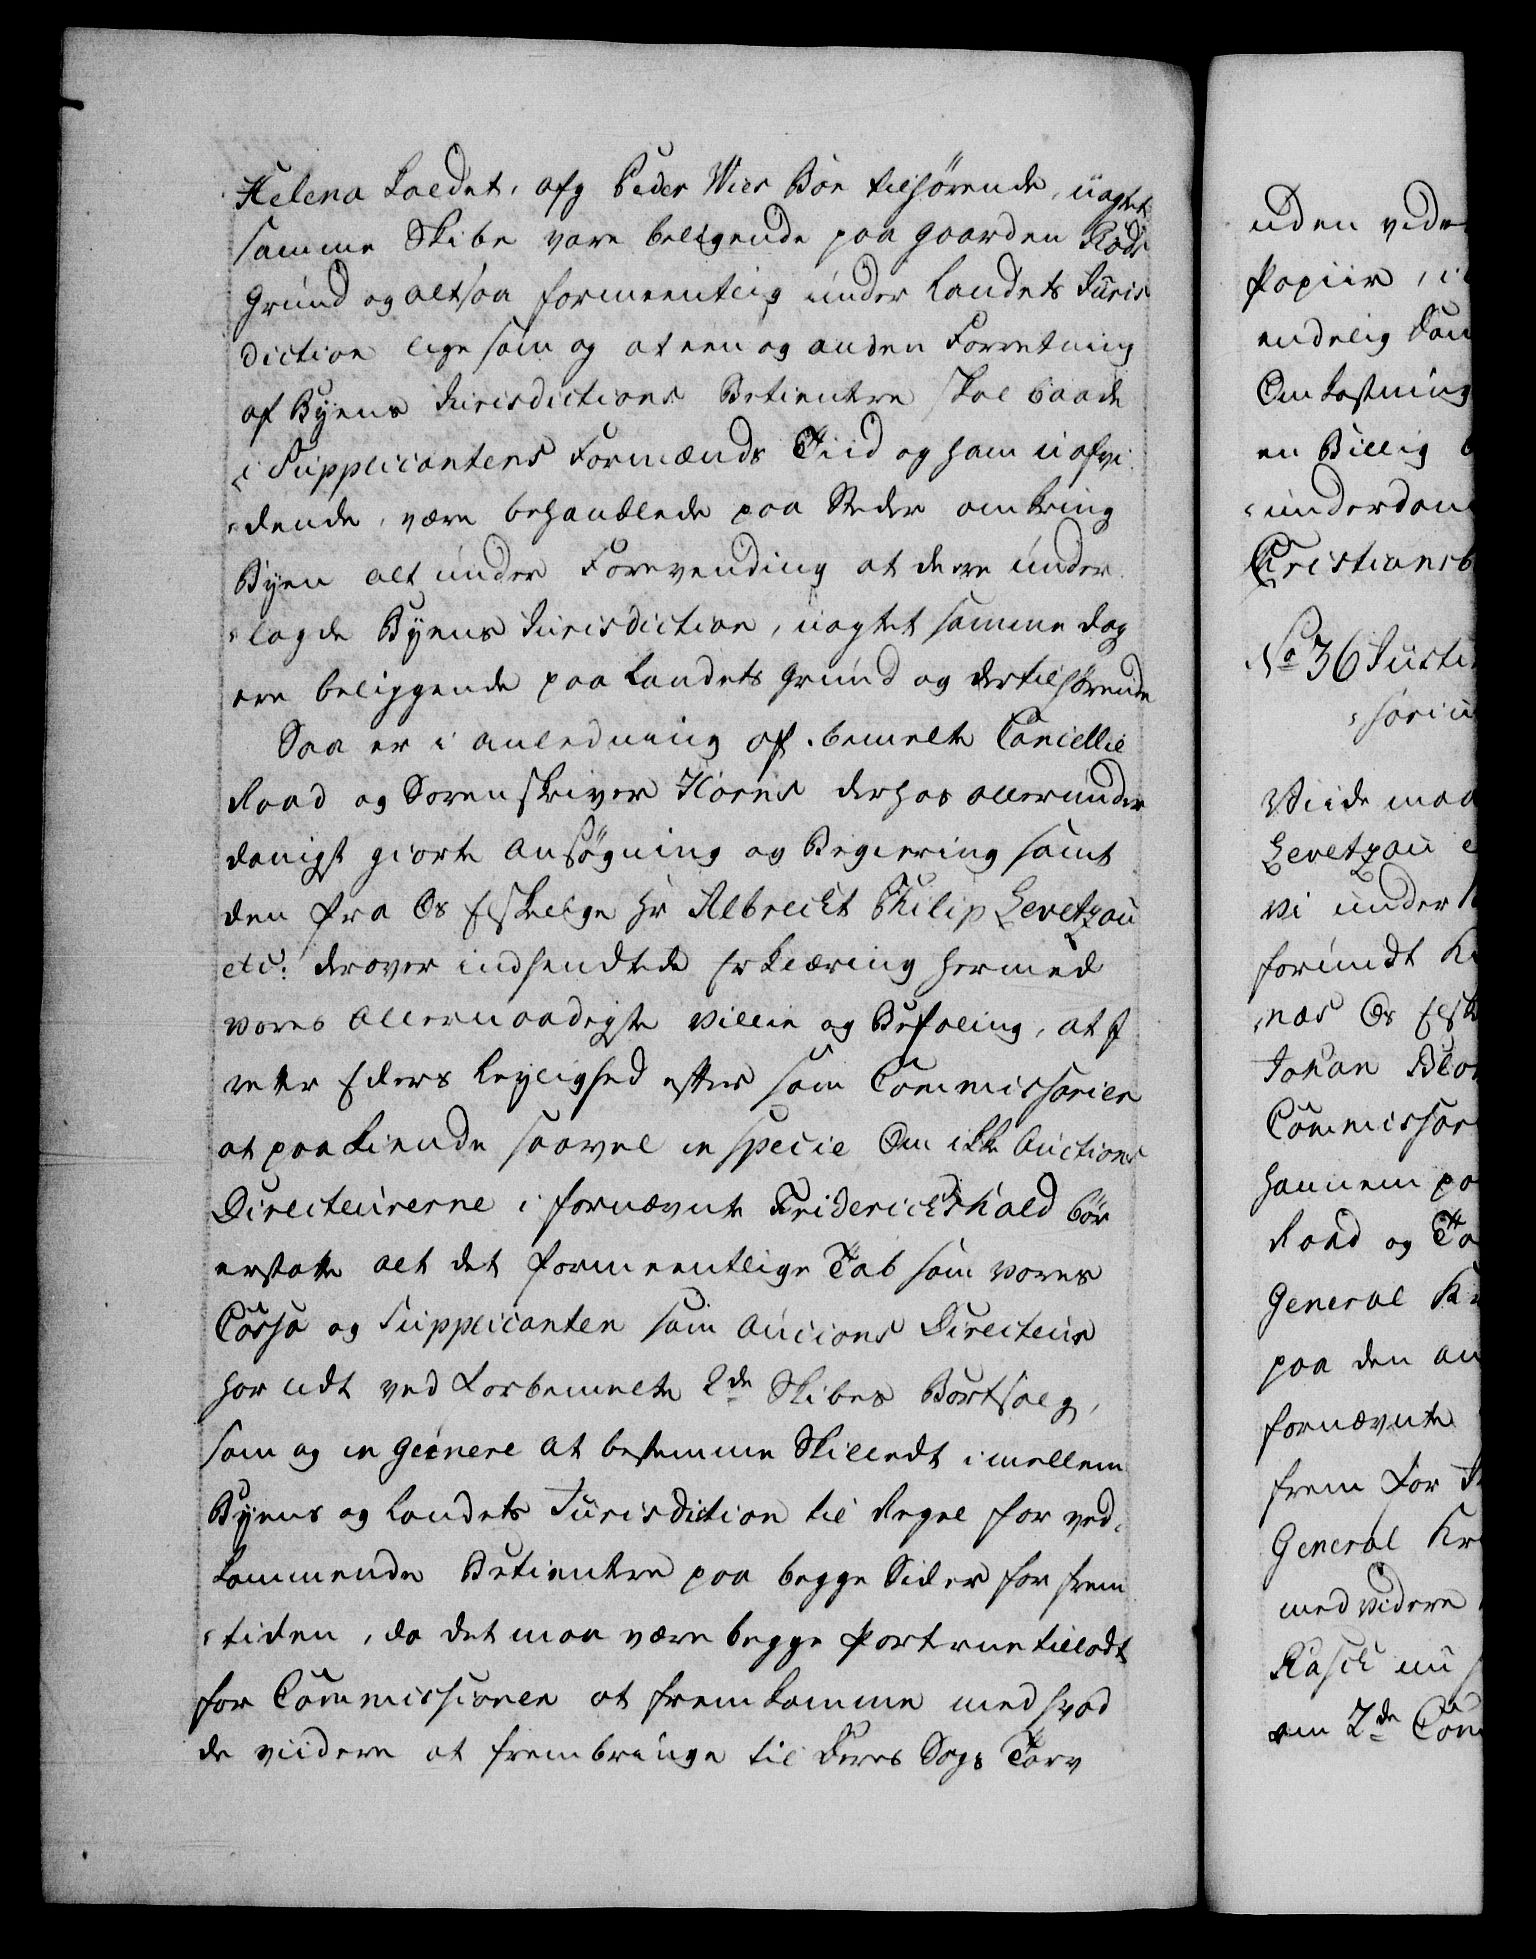 Helena kaldet, afg Peder Wier Boe tilhørende, uagtet
samme Skibe vare beligende paa gaarden Rods
Grund og altsaa formeentlig under Landets Juris
diction lige som og at een og anden Forretning
af Byens Jurisdictions Betientere skal baade
i Supplicantens Formænds Tiid og ham uafvi
-dende, være behandlede paa Steder omkring
Byen alt under Forevending at de ere under
-lagde Byens Jurisdiction, uagtet samme dog
ere beliggende paa Landets Grund og dertilhørende
Saa er i anledning af bemelte Cancellie
Raad og Sorenskriver Horns derhos allerunder
danigst giorte Ansøgning og Begiering samt
den fra Os Elskelige Hr Albrecht Philip Levetzau
etc: derover indsendte Erklæring hermed
vores Allernaadigste Villie og Befaling, at I
retter Eders Leylighed efter som Commissarier
at paakiende saavel in specie Om ikke Auctions
Directeurerne i fornævnte Friderichshald bør
erstatte alt det formeentlige Tab som vores
Cassa og Supplicanten som Auctions Directeur
har lidt ved Forbemelte 2de Skibes Bortsalg,
som og in genere at bestemme Skillet imellem
Byens og Landets Jurisdiction til Regel for ved-
kommende Betientere paa begge Sider for frem
-tiden, da det maa være begge Parterne tilladt
for Commissionen at fremkomme med hvad
de viidere at frembringe til Deres Sags Tarv
uden vider
Papiir, i
endelig
Omkostning
en Billig
-underdan
Cristiansb
No 36 Justi
Viide maa
Levetzau
vi under
forundt
Os Elsk
Johan
Commissar
hannem pa
Raad og
General Kr
paa den an
fornævnte
frem for
General Kr
med videre
Rasch nu
om 2de Com